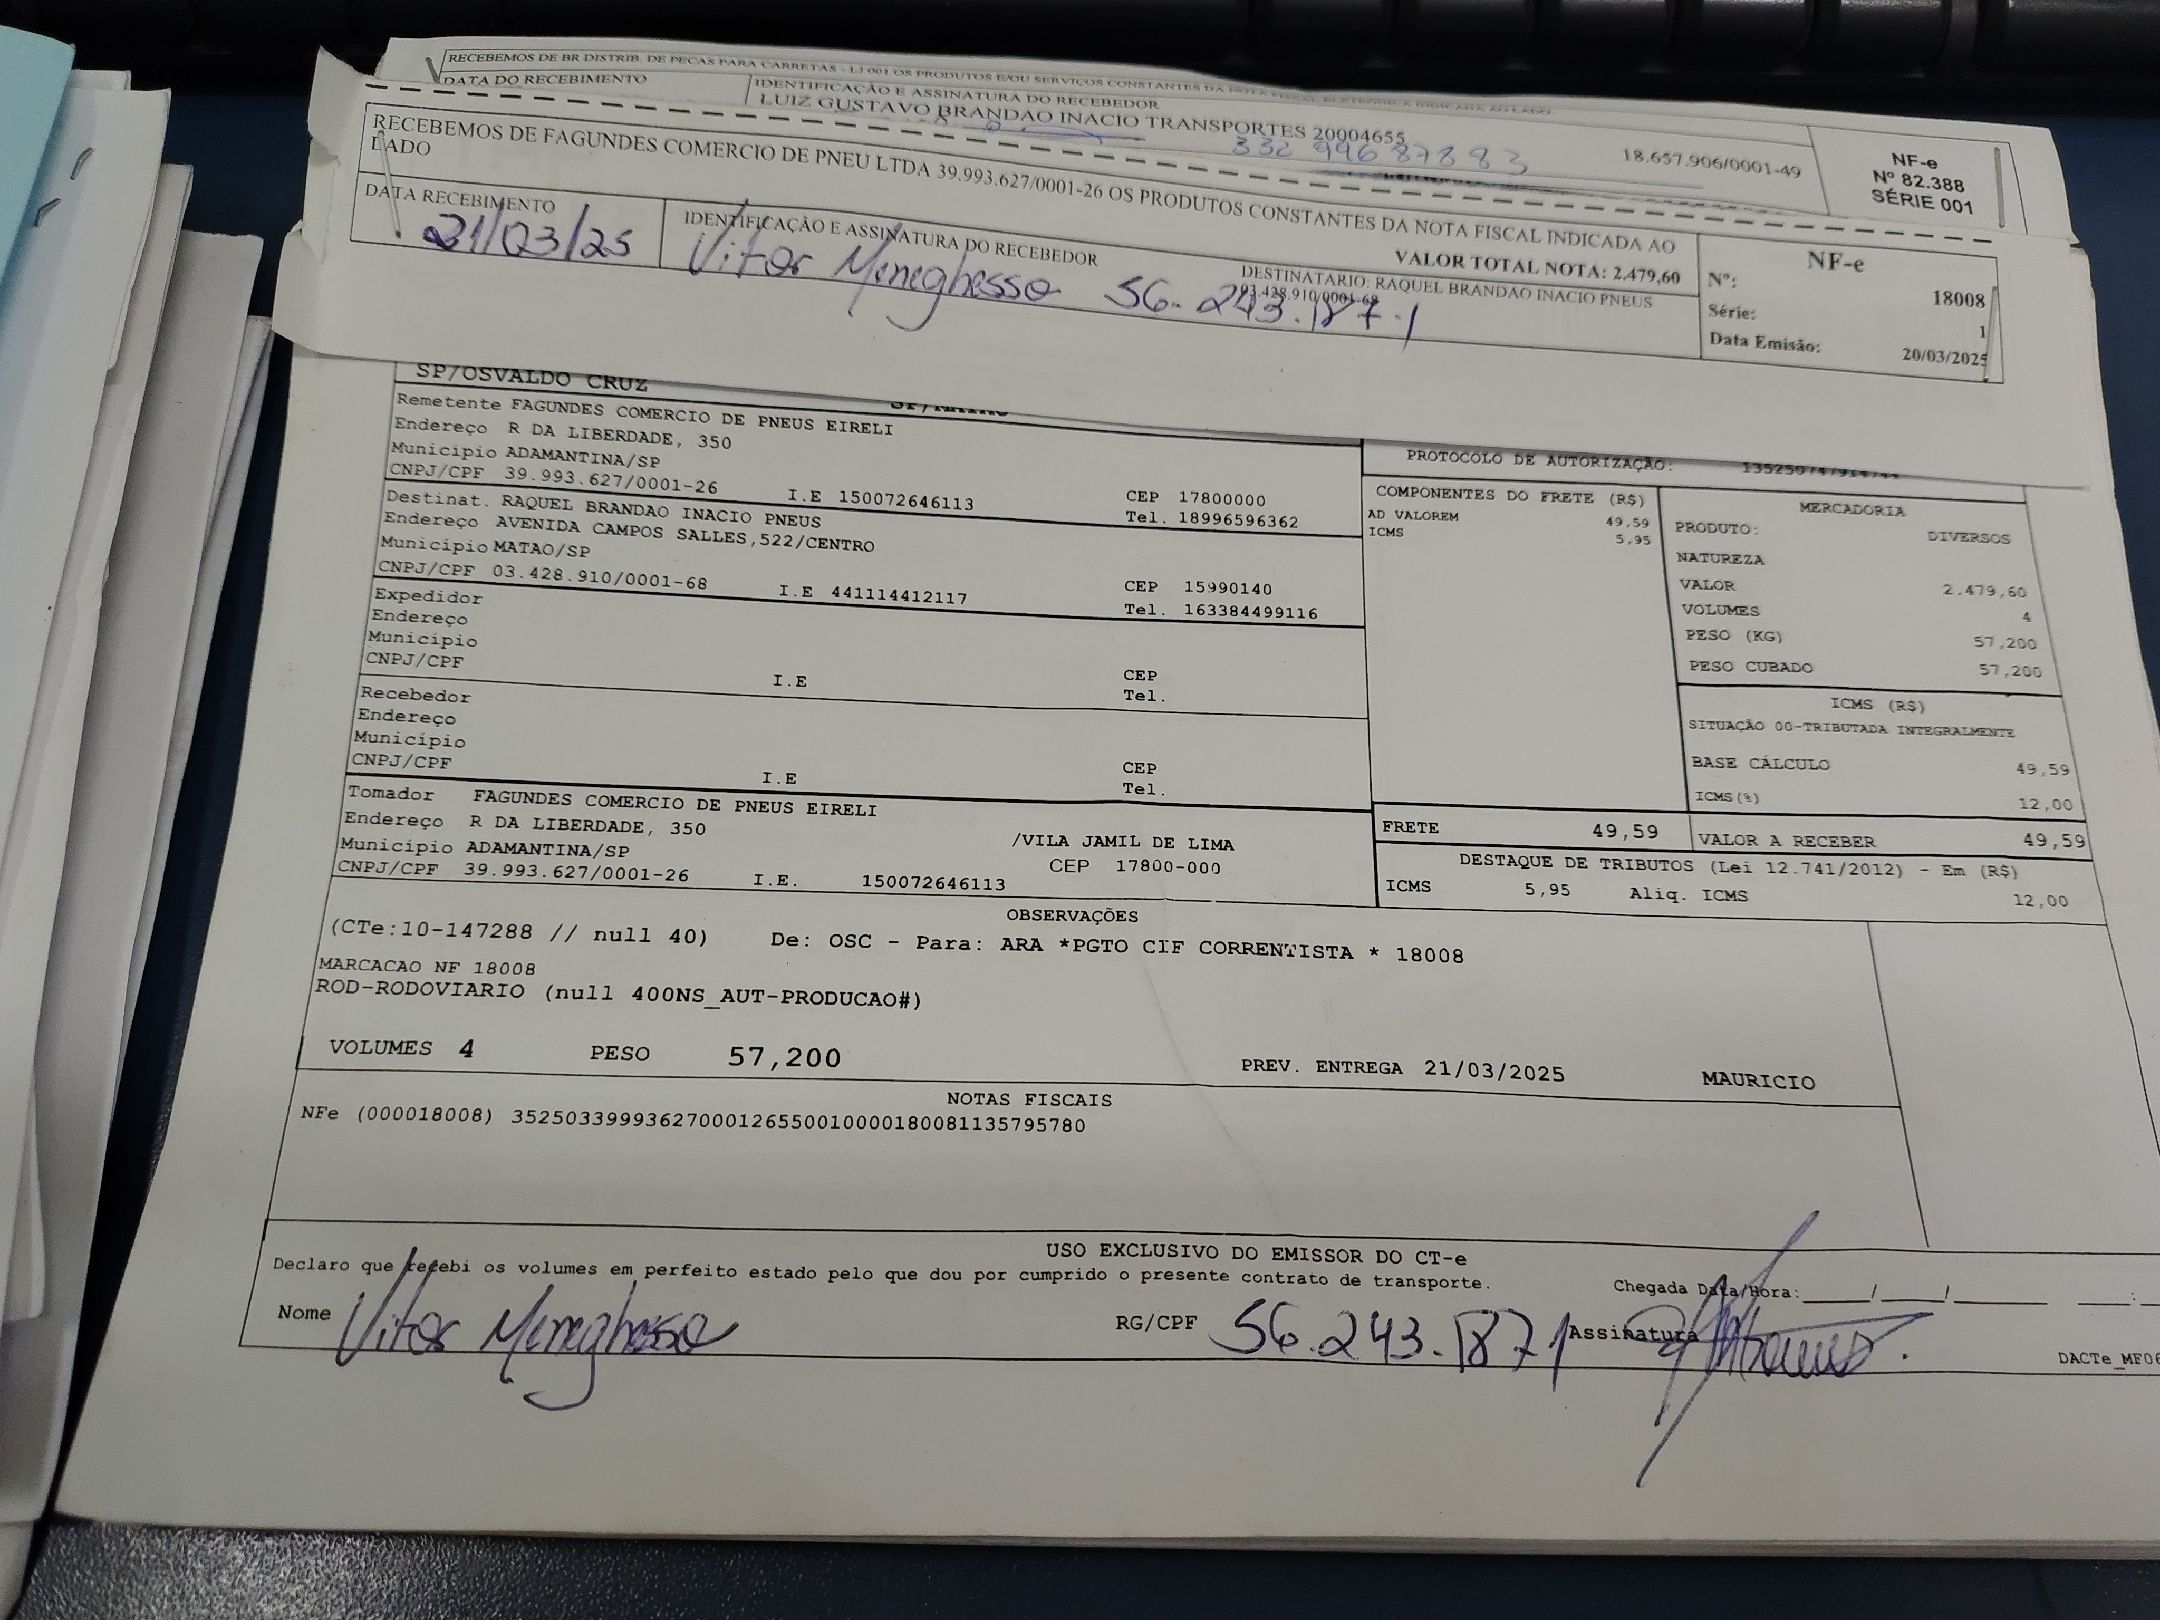 RECEBEMOS DE BR DISTRIB. DE PECAS PARA CARRETAS - LJ 001 OS PRODUTOS E/OU SERVIÇOS CONSTANTES DA NOTA FISCAL ELETRÔNICA INDICADA AO LADO
DATA DO RECEBIMENTO
IDENTIFICAÇÃO E ASSINATURA DO RECEBEDOR
LUIZ GUSTAVO BRANDAO INACIO TRANSPORTES 20004655
18.657.906/0001-49
NF-e
Nº 82.388
SÉRIE 001
RECEBEMOS DE FAGUNDES COMERCIO DE PNEU LTDA 39.993.627/0001-26 OS PRODUTOS CONSTANTES DA NOTA FISCAL INDICADA AO
LADO
VALOR TOTAL NOTA: 2.479,60
DATA RECEBIMENTO
21/03/25
IDENTIFICAÇÃO E ASSINATURA DO RECEBEDOR
Vitor Meneghesso 56.243.187.1
DESTINATARIO: RAQUEL BRANDAO INACIO PNEUS
03.428.910/0001-68
NF-e
Nº: 18008
Série: 1
Data Emisão: 20/03/2025
SP/OSVALDO CRUZ
Remetente FAGUNDES COMERCIO DE PNEUS EIRELI
Endereço R DA LIBERDADE, 350
Município ADAMANTINA/SP
CNPJ/CPF 39.993.627/0001-26 I.E 150072646113
CEP 17800000
Tel. 18996596362
Destinat. RAQUEL BRANDAO INACIO PNEUS
Endereço AVENIDA CAMPOS SALLES,522/CENTRO
Município MATAO/SP
CNPJ/CPF 03.428.910/0001-68 I.E 441114412117
CEP 15990140
Tel. 163384499116
Expedidor
Endereço
Município
CNPJ/CPF I.E
CEP
Tel.
Recebedor
Endereço
Município
CNPJ/CPF I.E
CEP
Tel.
Tomador FAGUNDES COMERCIO DE PNEUS EIRELI
Endereço R DA LIBERDADE, 350 /VILA JAMIL DE LIMA
Município ADAMANTINA/SP CEP 17800-000
CNPJ/CPF 39.993.627/0001-26 I.E. 150072646113
PROTOCOLO DE AUTORIZAÇÃO:
COMPONENTES DO FRETE (R$)
AD VALOREM 49,59
ICMS 5,95
MERCADORIA
PRODUTO: DIVERSOS
NATUREZA
VALOR 2.479,60
VOLUMES 4
PESO (KG) 57,200
PESO CUBADO 57,200
ICMS (R$)
SITUAÇÃO 00-TRIBUTADA INTEGRALMENTE
BASE CÁLCULO 49,59
ICMS(%) 12,00
FRETE 49,59
VALOR A RECEBER 49,59
DESTAQUE DE TRIBUTOS (Lei 12.741/2012) - Em (R$)
ICMS 5,95 Aliq. ICMS 12,00
OBSERVAÇÕES
(CTe:10-147288 // null 40) De: OSC - Para: ARA *PGTO CIF CORRENTISTA * 18008
MARCACAO NF 18008
ROD-RODOVIARIO (null 400NS_AUT-PRODUCAO#)
VOLUMES 4 PESO 57,200 PREV. ENTREGA 21/03/2025 MAURICIO
NOTAS FISCAIS
NFe (000018008) 35250339993627000126550010000180081135795780
USO EXCLUSIVO DO EMISSOR DO CT-e
Declaro que recebi os volumes em perfeito estado pelo que dou por cumprido o presente contrato de transporte.
Chegada Data/Hora:____/____/______ ____:
Nome Vitor Meneghesso RG/CPF 56.243.187 1 Assinatura
DACTe_MF06